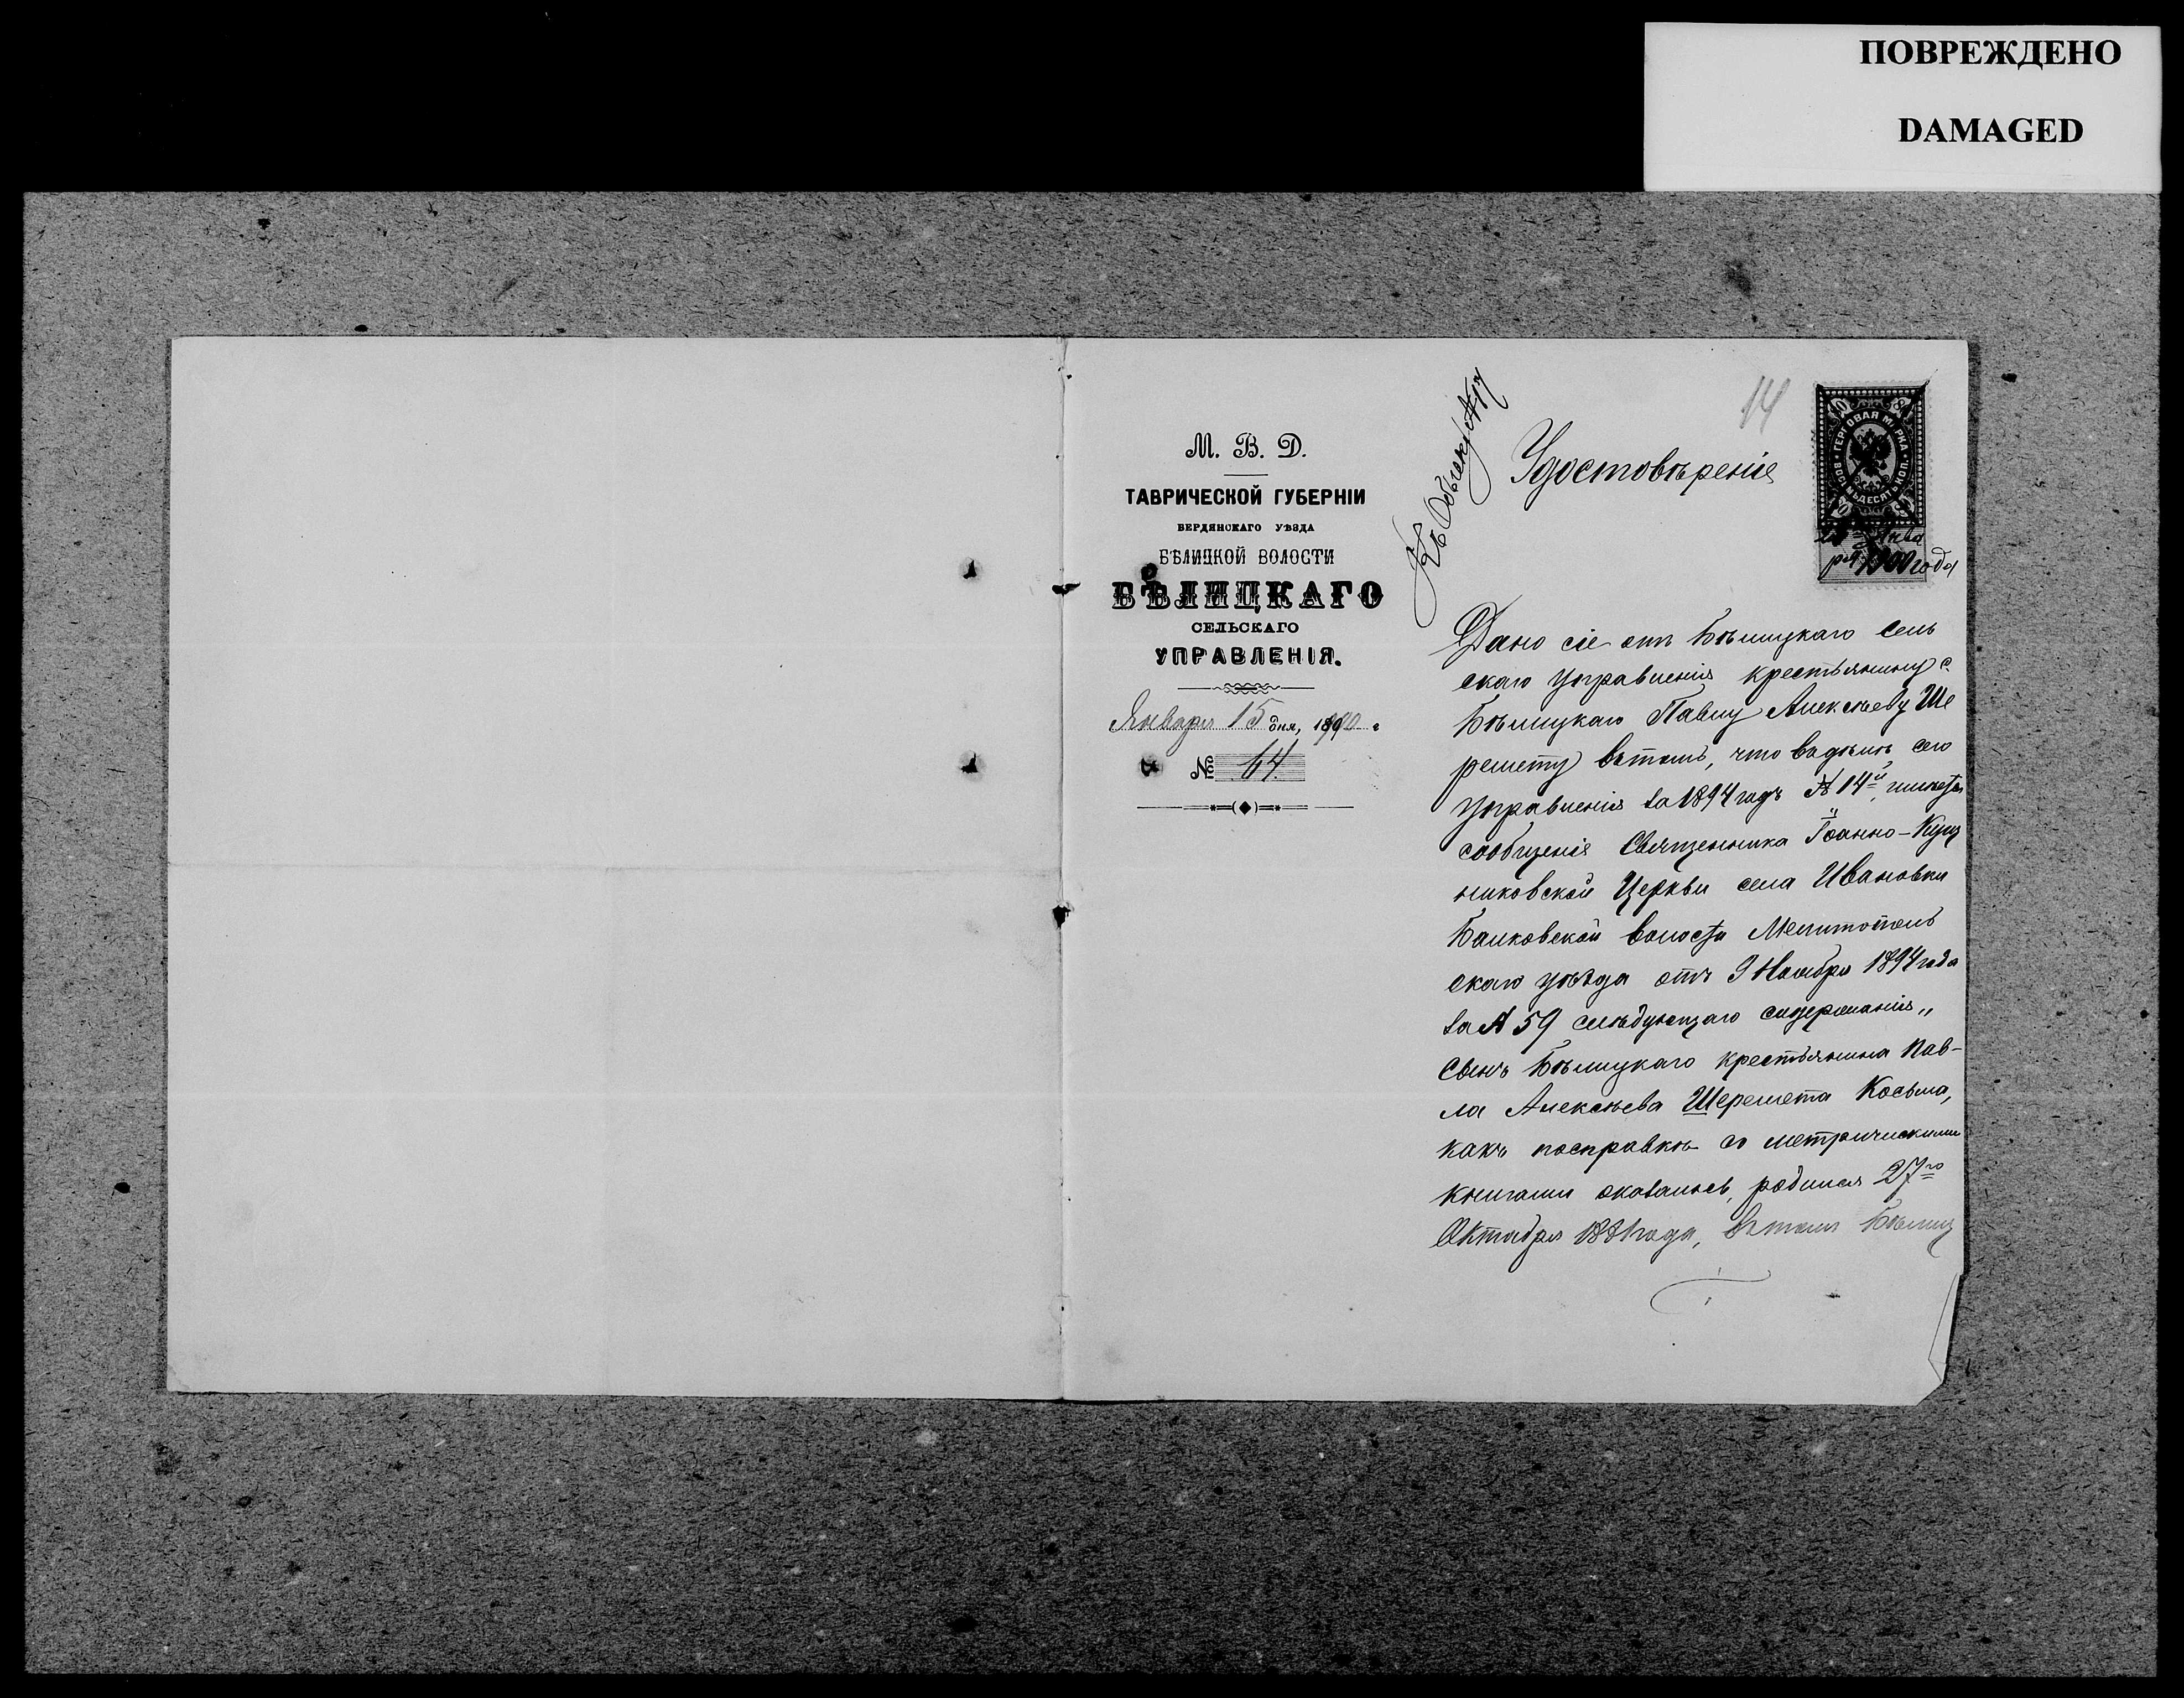 ПОВРЕЖДЕНО
DAMAGED
М. В. Д.
ТАВРИЧЕСКОЙ ГУБЕРНІИ
БЕРДЯНСКАГО УѢЗДА
БѢЛИЦКОЙ ВОЛОСТИ
БѢЛИЦКАГО
СЕЛЬСКАГО
УПРАВЛЕНІЯ.
Января 15 дня, 1900 г.
№ 64.
14
Удостовѣреніе
ГЕРБОВАЯ МАРКА
ВОСЕМЬДЕСЯТЪ КОП.
Янва
ря 1900 года
Дано сіе отъ Бѣлицкаго Сель
скаго Управленія крестьянину с.
Бѣлицкаго Павлу Алексѣеву Ше
ремету въ томъ, что въ дѣлѣ сего
Управленія за 1894 годъ № 14й, имѣется
сообщеніе Священника Іоанно-Куш
никовской Церкви села Ивановки
Балковской волости Мелитополь
скаго уѣзда отъ 9 Ноября 1894 года
за № 59 слѣдующаго содержанія „
Сынъ Бѣлицкаго крестьянина Пав-
ла Алексѣева Шеремета Косьма,
какъ по справкѣ съ метрическими
книгами оказалось, родился 27го
Октября 1881 года, въ томъ Бѣлиц